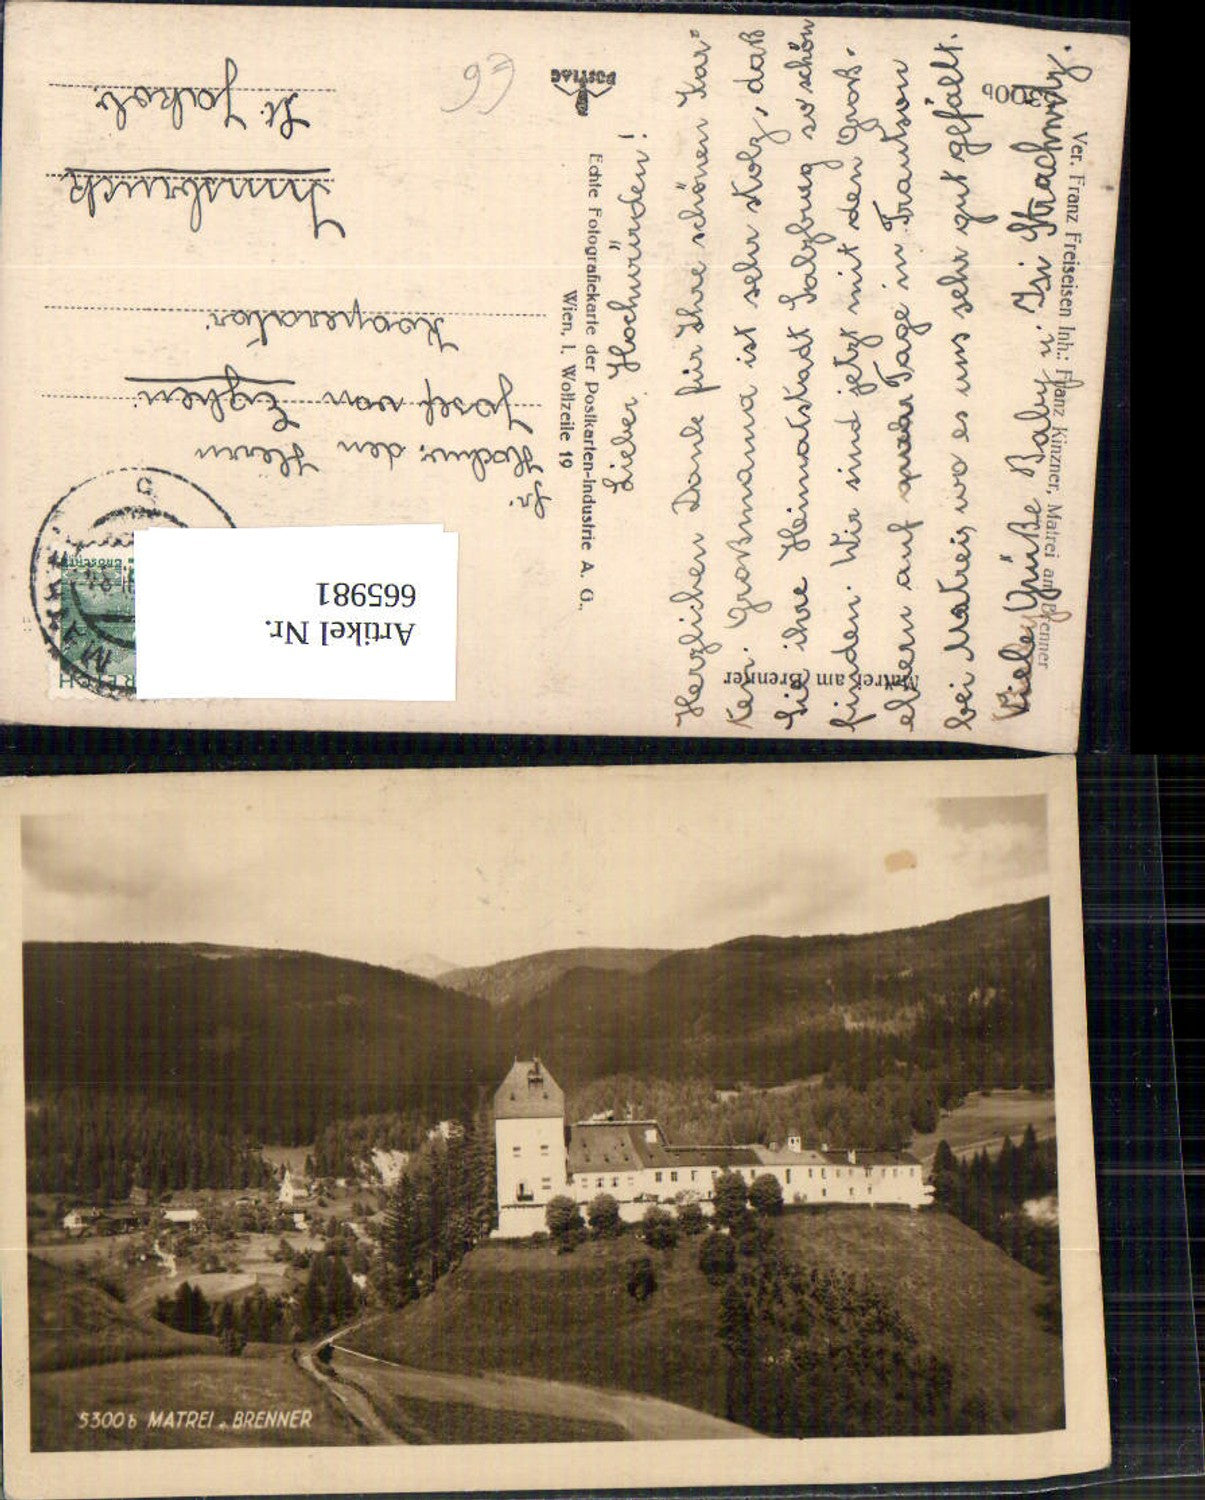 Ver. Franz Freiseisen Inh.: Franz Kinzner, Matrei am Brenner
5300b
Matrei am Brenner
POSTIAG
Echte Fotografiekarte der Postkarten-Industrie A. G.,
Wien, I. Wollzeile 19
Lieber Hochwürden!
Herzlichen Dank für Ihre schönen Kar-
ten. Großmama ist sehr stolz, daß
Sie ihre Heimatstadt Salzburg so schön
finden. Wir sind jetzt mit den Groß-
eltern auf Tage in Trautson
bei Matrei, wo es uns sehr gut gefällt.
Viele Grüße Baby u. Isi Strachwitz.
Hochw. den Herrn
Josef von
Kooperator
Innsbruck
St. Jakob.
GROSCHEN
REICH
Artikel Nr.
665981
5300b MATREI a. BRENNER